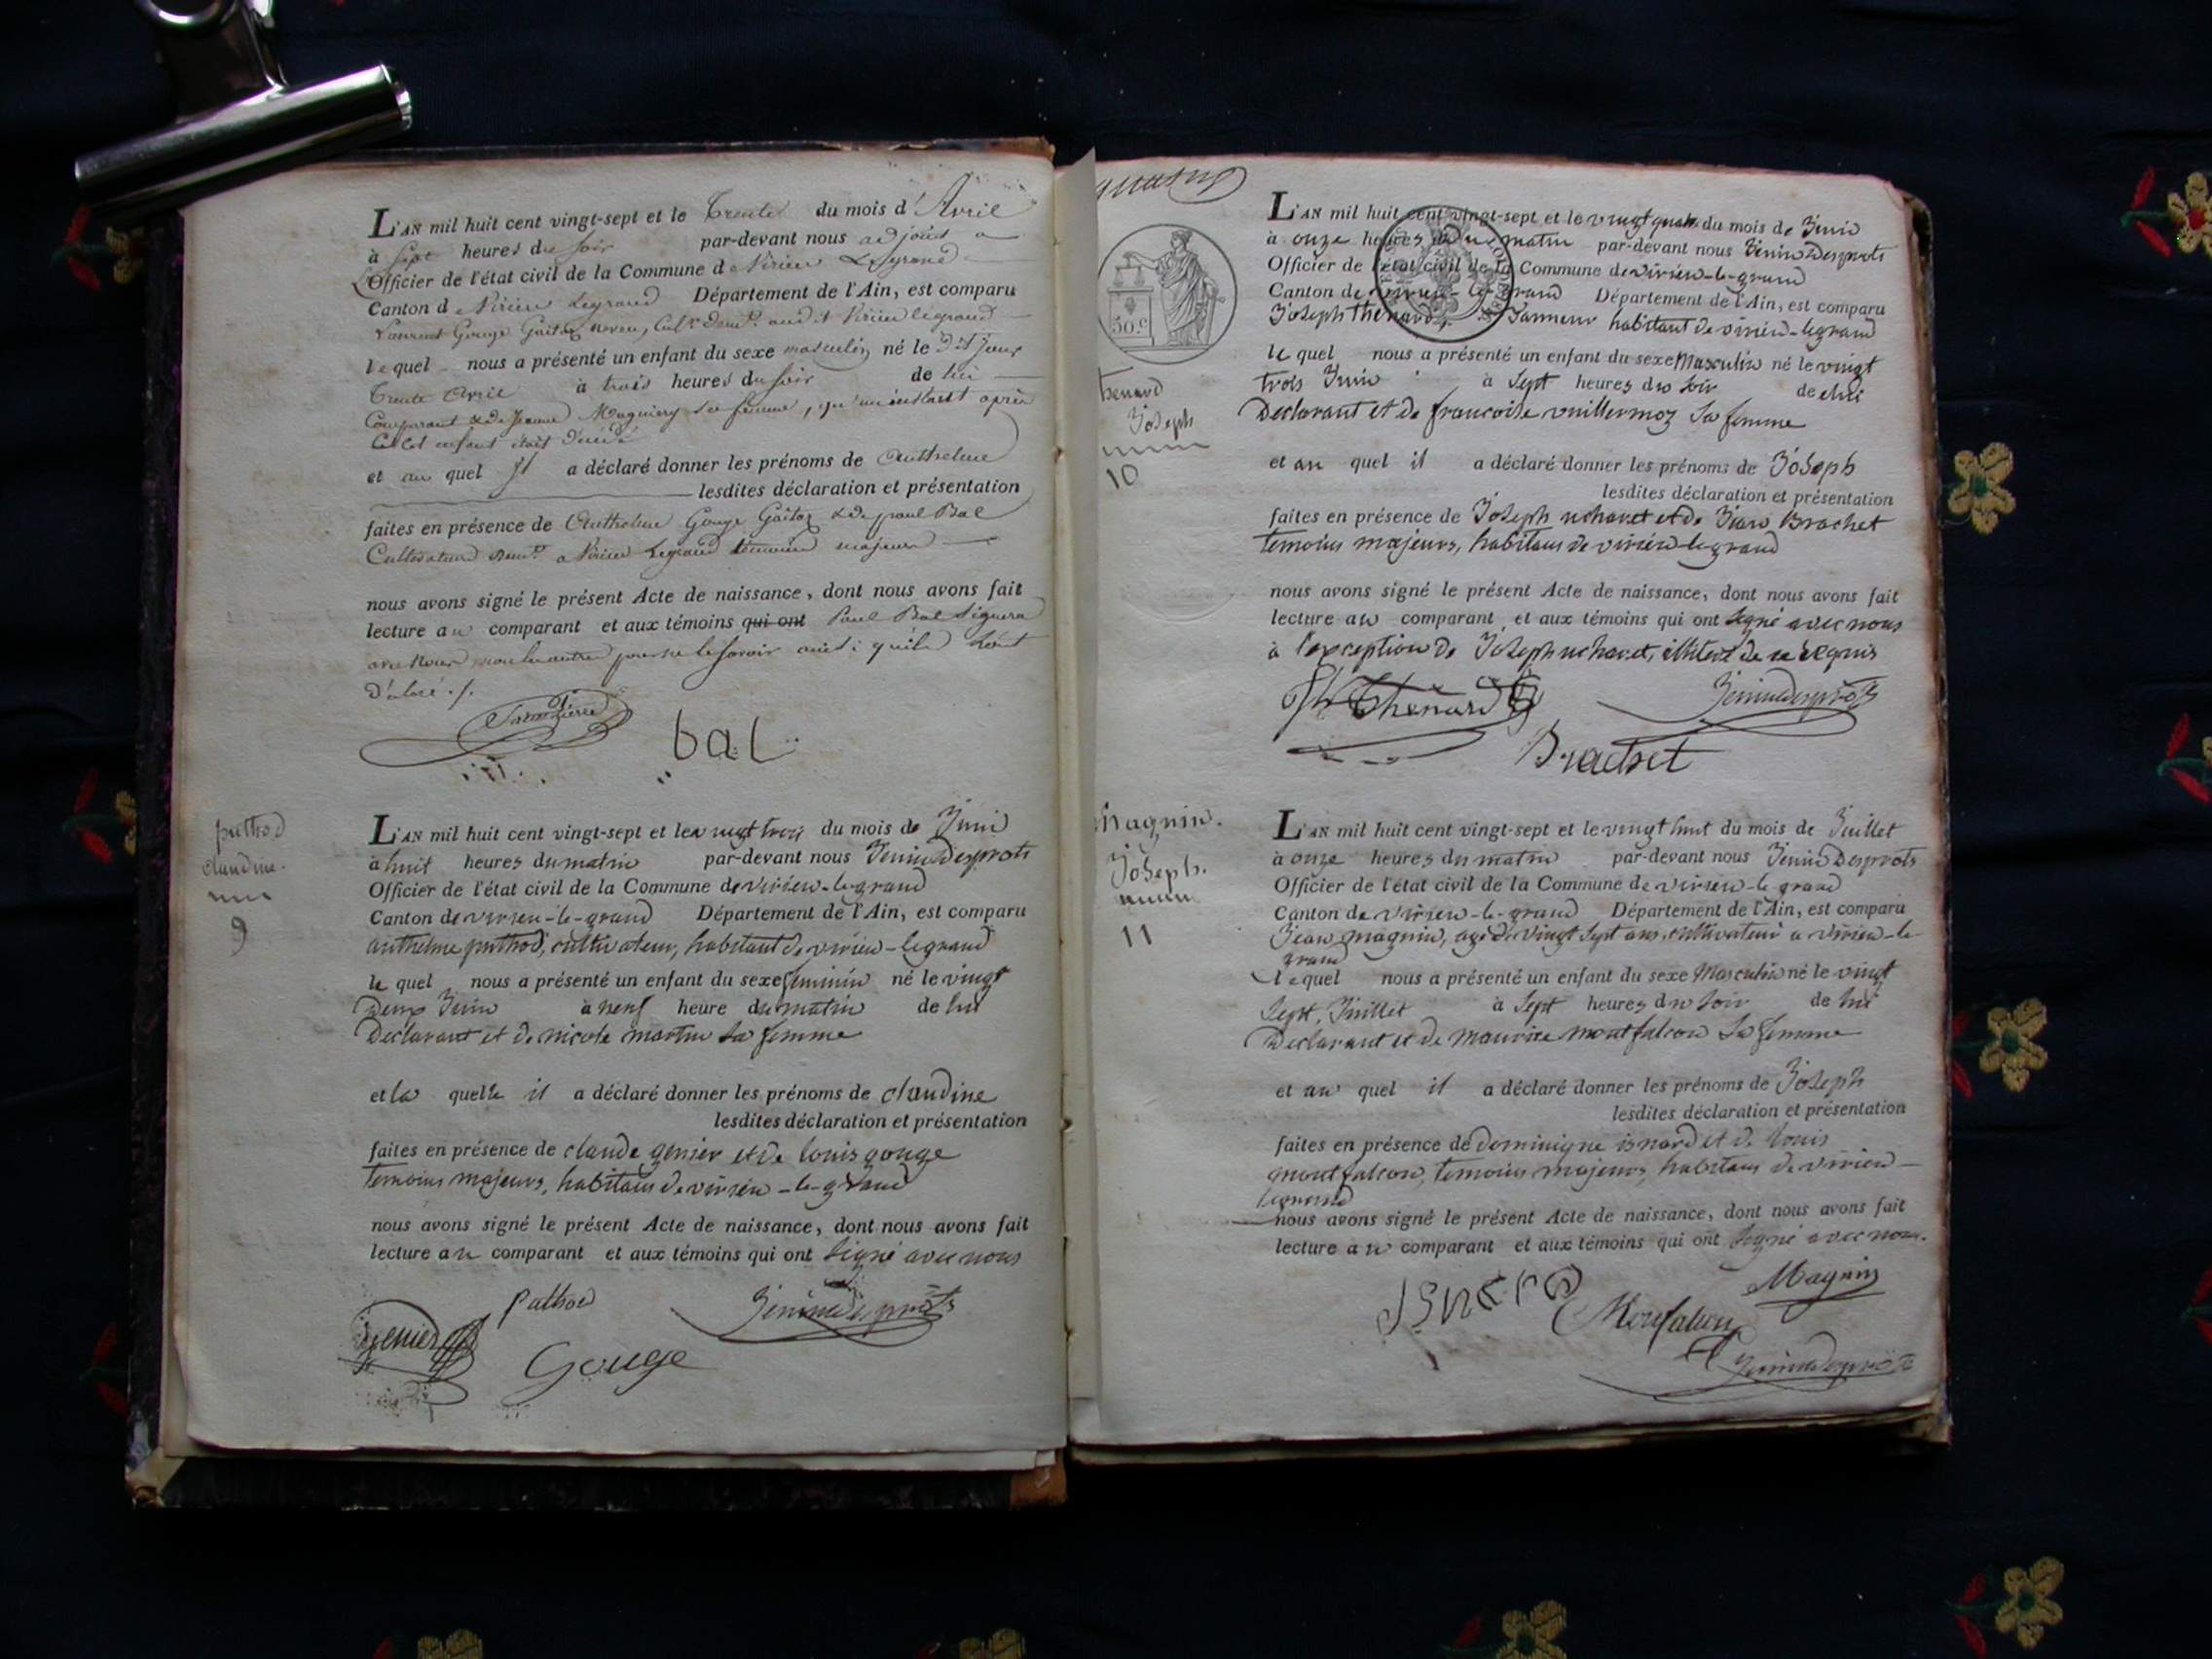 L'AN mil huit cent vingt-sept et le Trente du mois d'Avril
à sept heures du soir par-devant nous adjoint a
L'Officier de l'état civil de la Commune de Virieu Legrand
Canton de Virieu Legrand Département de l'Ain, est comparu
Laurent Gouge Gaitaz neveu, Cultr demt. audit Virieu legrand
lequel nous a présenté un enfant du sexe masculin né le dit jour
Trente Avril à trois heures du soir de lui
Comparant & de Jeanne sa femme, qu'un instant après
cet enfant était décédé
et au quel Il a déclaré donner les prénoms de Anthelme
lesdites déclaration et présentation
faites en présence de Anthelme Gouge Gaitaz & de paul Bal
Cultivateurs demt. a Virieu Legrand témoins majeurs
nous avons signé le présent Acte de naissance, dont nous avons fait
lecture au comparant et aux témoins qui ont Paul Bal signera
avec nous non les autres pour ne le savoir ainsi qu'ils l'ont
déclaré ./.
bal
puthod
claudine.
9
L'AN mil huit cent vingt-sept et le vingt trois du mois de Juin
à huit heures du matin par-devant nous Jenin Desprots
Officier de l'état civil de la Commune de virieu-le-grand
Canton de virieu-le-grand Département de l'Ain, est comparu
anthelme puthod, cultivateur, habitant de virieu-legrand
le quel nous a présenté un enfant du sexe feminin né le vingt
Deux Juin à neuf heure du matin de lui
Declarant et de nicole martin sa femme
et la quelle il a déclaré donner les prénoms de claudine
lesdites déclaration et présentation
faites en présence de claude genier et de louis gouge
temoins majeurs, habitans de virieu-le-grand
nous avons signé le présent Acte de naissance, dont nous avons fait
lecture au comparant et aux témoins qui ont signé avec nous
Puthod Jenindesprots
genier
Gouge
50.c
L'AN mil huit cent vingt-sept et le vingt quatre du mois de Juin
à onze heures du matin par-devant nous Jenin Desprots
Officier de l'état civil de la Commune de virieu-le-grand
Canton de virieu-le-grand Département de l'Ain, est comparu
Joseph thenard, Tanneur habitant de virieu-legrand
le quel nous a présenté un enfant du sexe Masculin né le vingt
trois Juin à sept heures du soir de lui
Declarant et de francoise vuillermoz sa femme
thenard
Joseph
10
et au quel il a déclaré donner les prénoms de Joseph
lesdites déclaration et présentation
faites en présence de Joseph uchavet et de Jean Brachet
temoins majeurs, habitans de virieu-legrand
nous avons signé le présent Acte de naissance, dont nous avons fait
lecture au comparant et aux témoins qui ont signé avec nous
à l'exception de Joseph uchavet, illiteré de ce requis
Thenard Jenindesprots
Brachet
Magnin.
Joseph.
11
L'AN mil huit cent vingt-sept et le vingt huit du mois de Juillet
à onze heures du matin par-devant nous Jenin Desprots
Officier de l'état civil de la Commune de virieu-le grand
Canton de virieu-le-grand Département de l'Ain, est comparu
Jean magnin, agé de vingt sept ans, cultivateur a virieu-le
grand
lequel nous a présenté un enfant du sexe Masculin né le vingt
sept Juillet à sept heures du soir de lui
Declarant et de maurice montfalcon sa femme
et au quel il a déclaré donner les prénoms de Joseph
lesdites déclaration et présentation
faites en présence de dominique isnard et de louis
montfalcon, temoins majeurs, habitans de virieu-
legrand
nous avons signé le présent Acte de naissance, dont nous avons fait
lecture au comparant et aux témoins qui ont signé avec nous.
Magnin
Isnard
Monfalcon
Jenindesprots